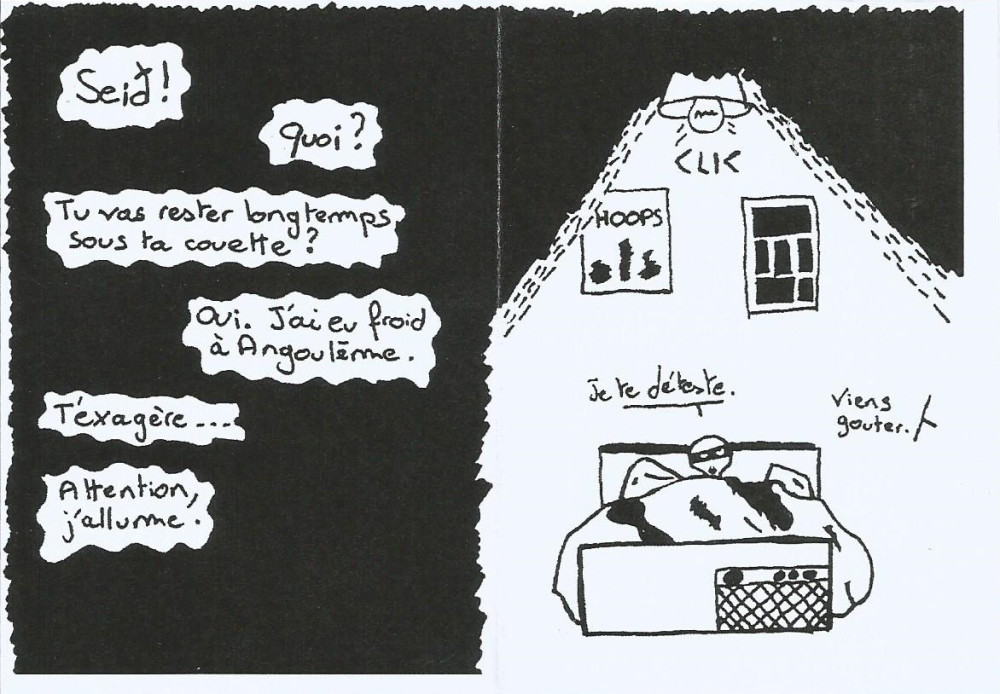 Seid!
Quoi?
Tu vas rester longtemps
sous ta couette?
Oui. J'ai eu froid
à Angoulême.
T'éxagère...
Attention,
j'allume.
CLIC
HOOPS
Je te déteste.
Viens
gouter.